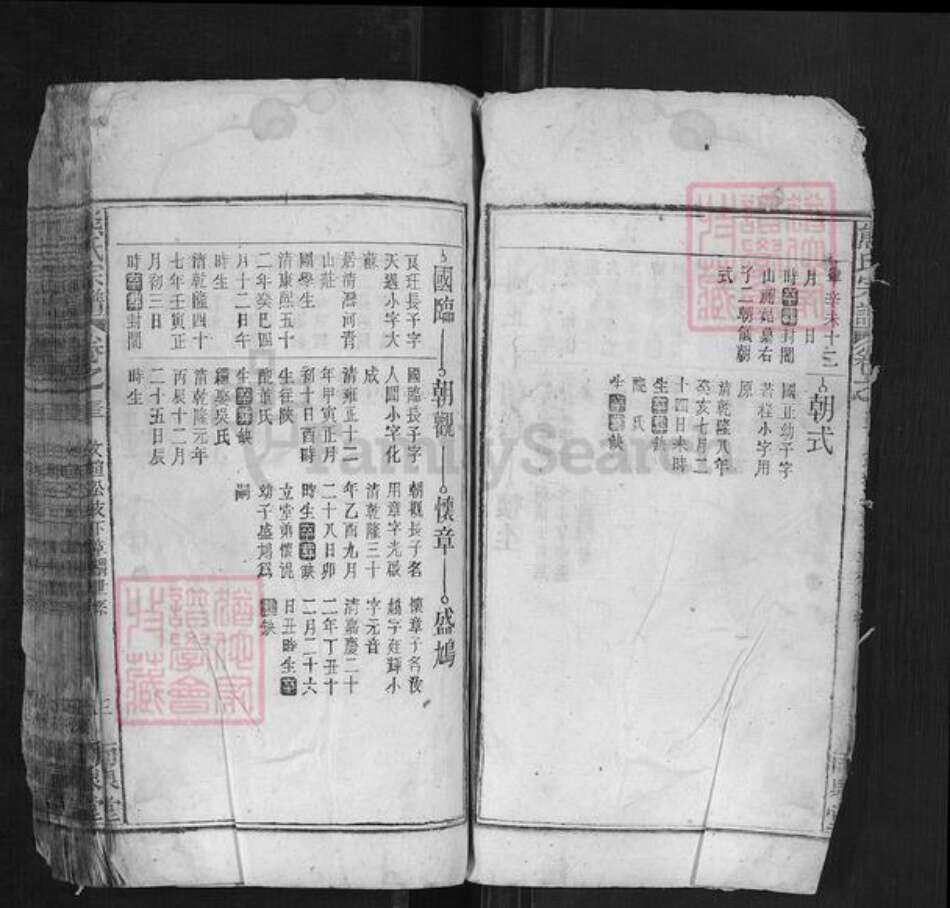 年辛未十二
月 日
時卒葬封閣
山
子二朝儀朝
式
朝式
國正幼子字
若程小字用
原
清乾隆八年
癸亥七月
十四日未時
生卒葬缺
配 氏
生卒葬缺
國臨
長子字
天遇小字大
蘇
居清潛河青
山莊
國學生
清康熙五十
二年癸巳四
月十二日午
時生
清乾隆四十
七年壬寅正
月初三日
時卒葬封閣
朝觀
國臨長子字
人閣小字化
成
清雍正十二
年甲寅正月
初十日酉時
生往陝
配董氏
生卒葬缺
繼娶吳氏
清乾隆元年
丙辰十二月
二十五日辰
時生
懷章
朝觀長子名
用章字光啟
清乾隆三十
年乙酉九月
二十八日卯
時生卒葬缺
立堂弟懷混
幼子盛鳩爲
嗣
盛鳩
懷章子名
越字廷輝小
字元音
清嘉慶二十
二年丁丑十
二月二十六
日丑時生卒
葬缺
FamilySearch